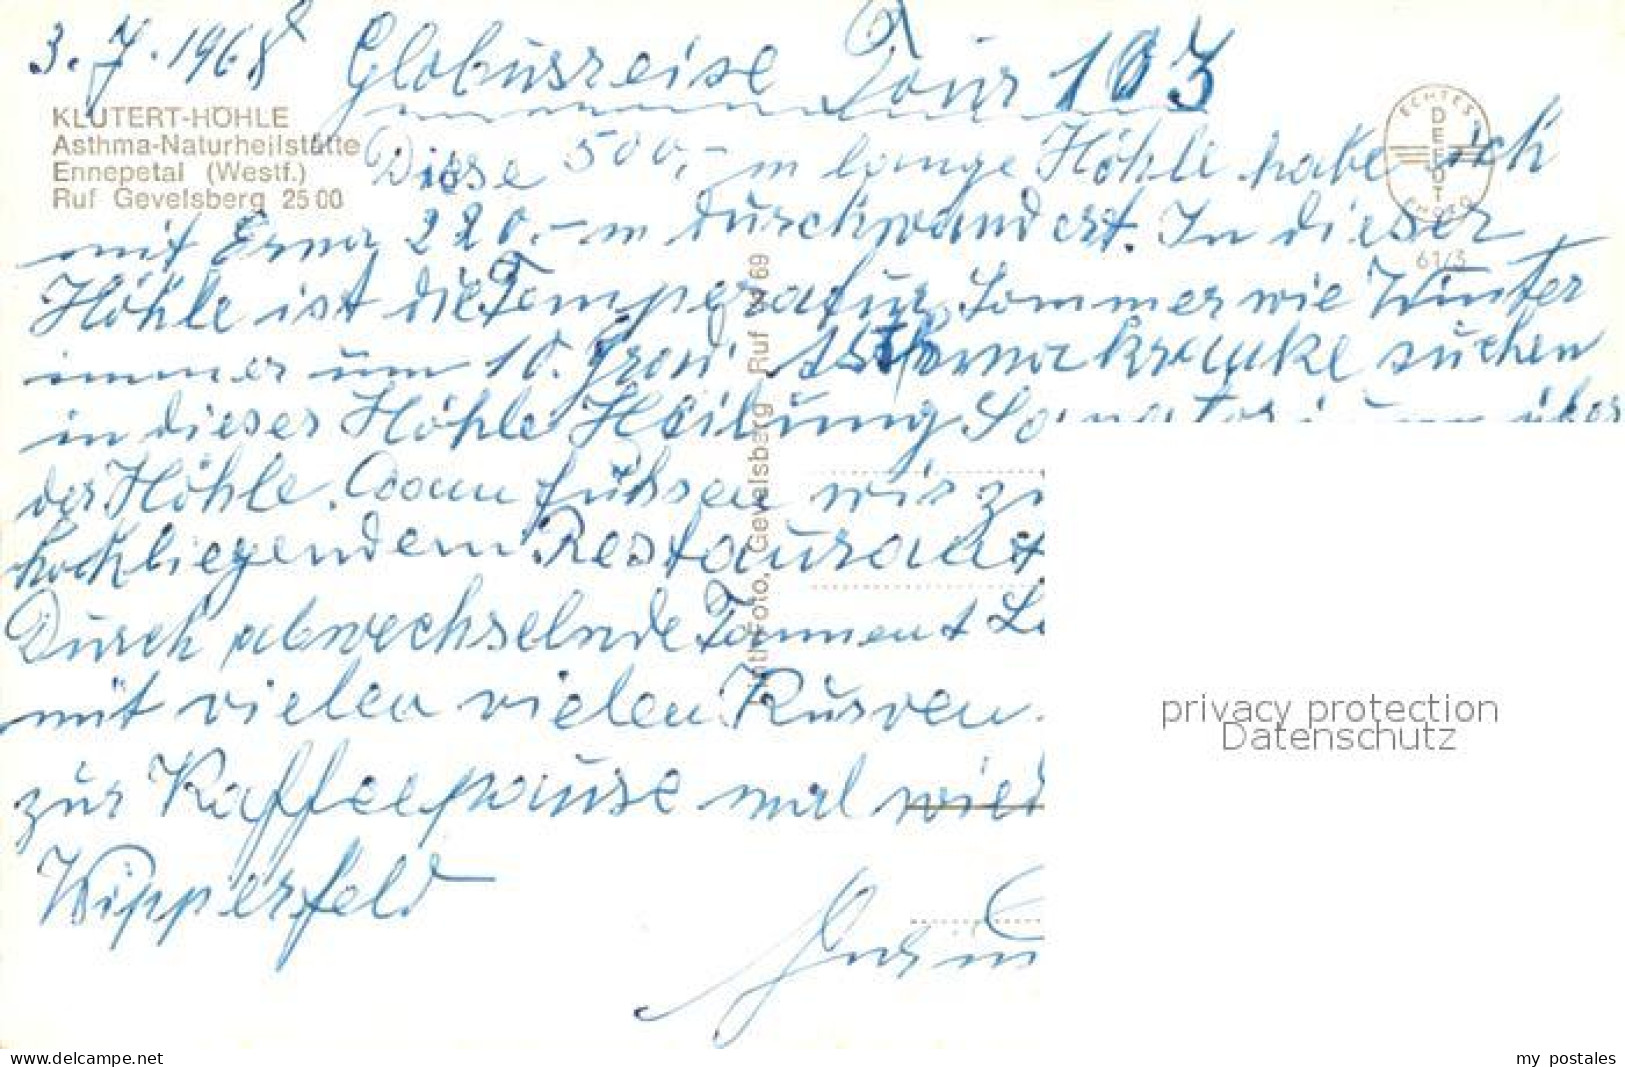 3.7.1968 Globusreise Tour 103
KLUTERT-HÖHLE
Asthma-Naturheilstätte
Ennepetal (Westf.)
Ruf Gevelsberg 25 00
ECHTES
DEEYOT
PHOTO
61/3
Diese 500,- m lange Höhle habe ich
mit Erna 220.- m durchwandert. In dieser
Höhle ist die Temperatur Sommer wie Winter
immer um 10. Grad. Asthmakranke suchen
in dieser Höhle Heilung Sanatorium über
der Höhle. Dann fuhren wir
hochliegendem Restaurant
Durch abwechselnde Tannen +
mit vielen vielen Kurven
zur Kaffeepause mal
Wipperfeld
Foto, Gevelsberg Ruf 69
privacy protection
Datenschutz
www.delcampe.net
my postales